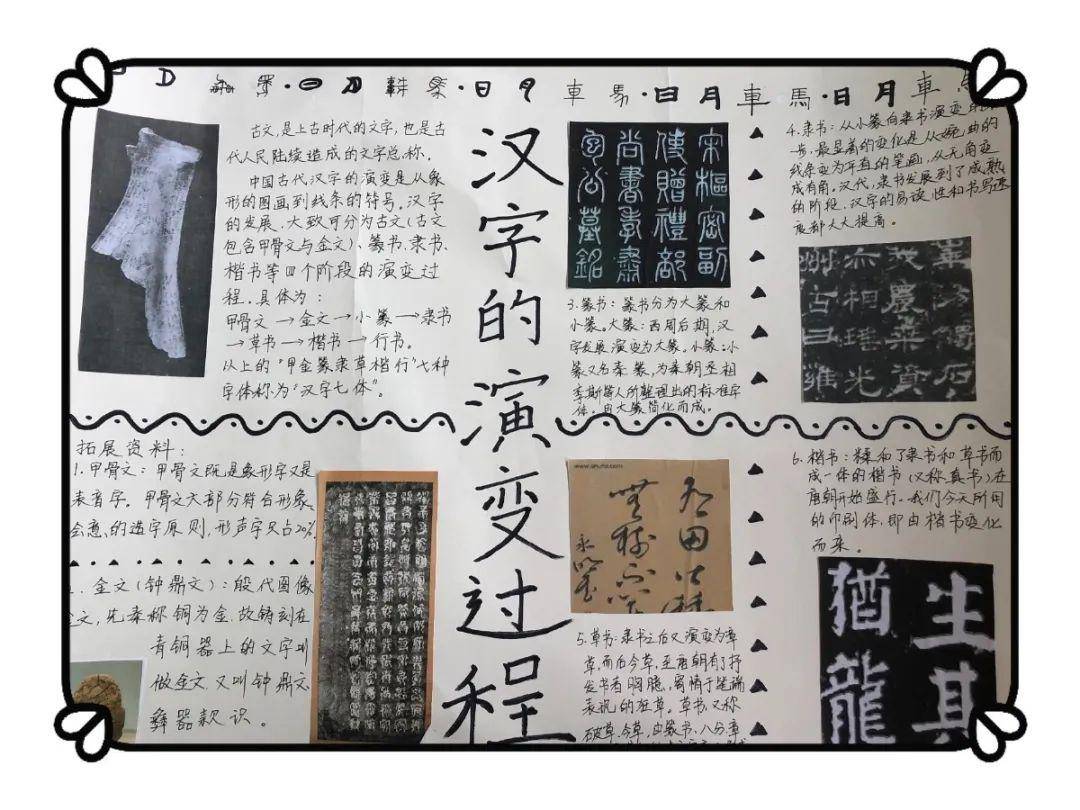 日 月 車 馬 · 日 月 車 馬 · 日 月 車
汉字的演变过程
古文,是上古时代的文字,也是古
代人民陆续造成的文字总称。
中国古代汉字的演变是从象
形的图画到线条的符号。汉字
的发展,大致可分为古文(古文
包含甲骨文与金文)、篆书、隶书、
楷书等四个阶段的演变过
程。具体为:
甲骨文→金文→小篆→隶书
→草书→楷书→行书。
以上的“甲金篆隶草楷行”七种
字体称为“汉字七体”。
宋枢密副
使赠礼部
尚书孝肃
包公墓铭
3.篆书:篆书分为大篆和
小篆。大篆:西周后期,汉
字发展演变为大篆。小篆:小
篆又名秦篆,为秦朝丞相
李斯等人所整理出的标准字
体,由大篆简化而成。
4.隶书:从小篆向隶书演变
一步,最显著的变化是从婉曲的
线条变为平直的笔画,从无角变
成有角。汉代,隶书发展到了成熟
的阶段,汉字的易读性和书写速
度都大大提高。
拓展资料:
1.甲骨文:甲骨文既是象形字又是
表音字。甲骨文大部分符合形象、
会意的造字原则,形声字只占20%
金文(钟鼎文):殷代图像
文,先秦称铜为金,故铸刻在
青铜器上的文字叫
做金文,又叫钟鼎文
彝器款识。
5.草书:隶书之后又演变为章
草,而后今草,至唐朝有了抒
发书者胸臆,寄情于笔端
表现的狂草。草书,又称
破草、今草,由篆书、八分、章
6.楷书:糅和了隶书和草书而
成一体的楷书(又称真书)在
唐朝开始盛行。我们今天所用
的印刷体,即由楷书变化
而来。
生其
猶龍